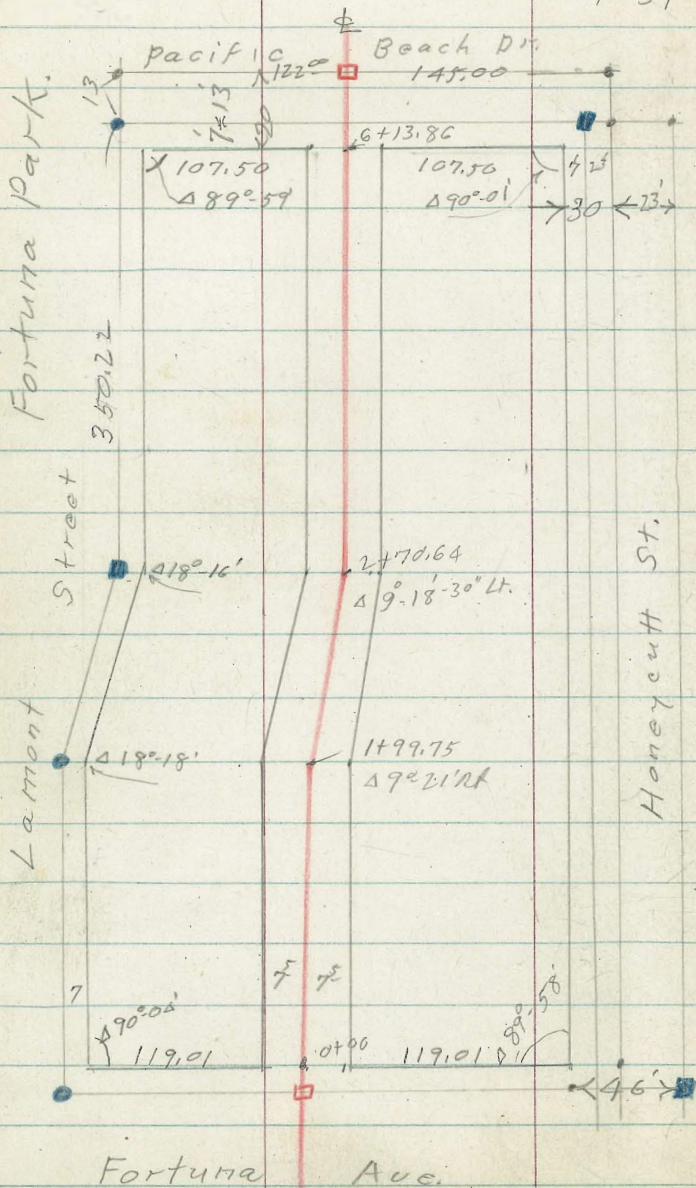 ℄
Pacific Beach Dr.
122⁰⁰ 145.00
13
7 x 13
20
6+13.86
107.50 107.50
Δ 89°-59' Δ 90°-01'
30 23'
Fortuna Park.
350.22
Lamont Street
Honeycutt St.
Δ 18°-16'
2+70.64
Δ 9°-18'-30" Lt.
Δ 18°-18'
1+99.75
Δ 9°21' Rt
7
7⁵ 7⁵
Δ 90°-04'
89°-58'
119.01 0+00 119.01
46'
Fortuna Ave.